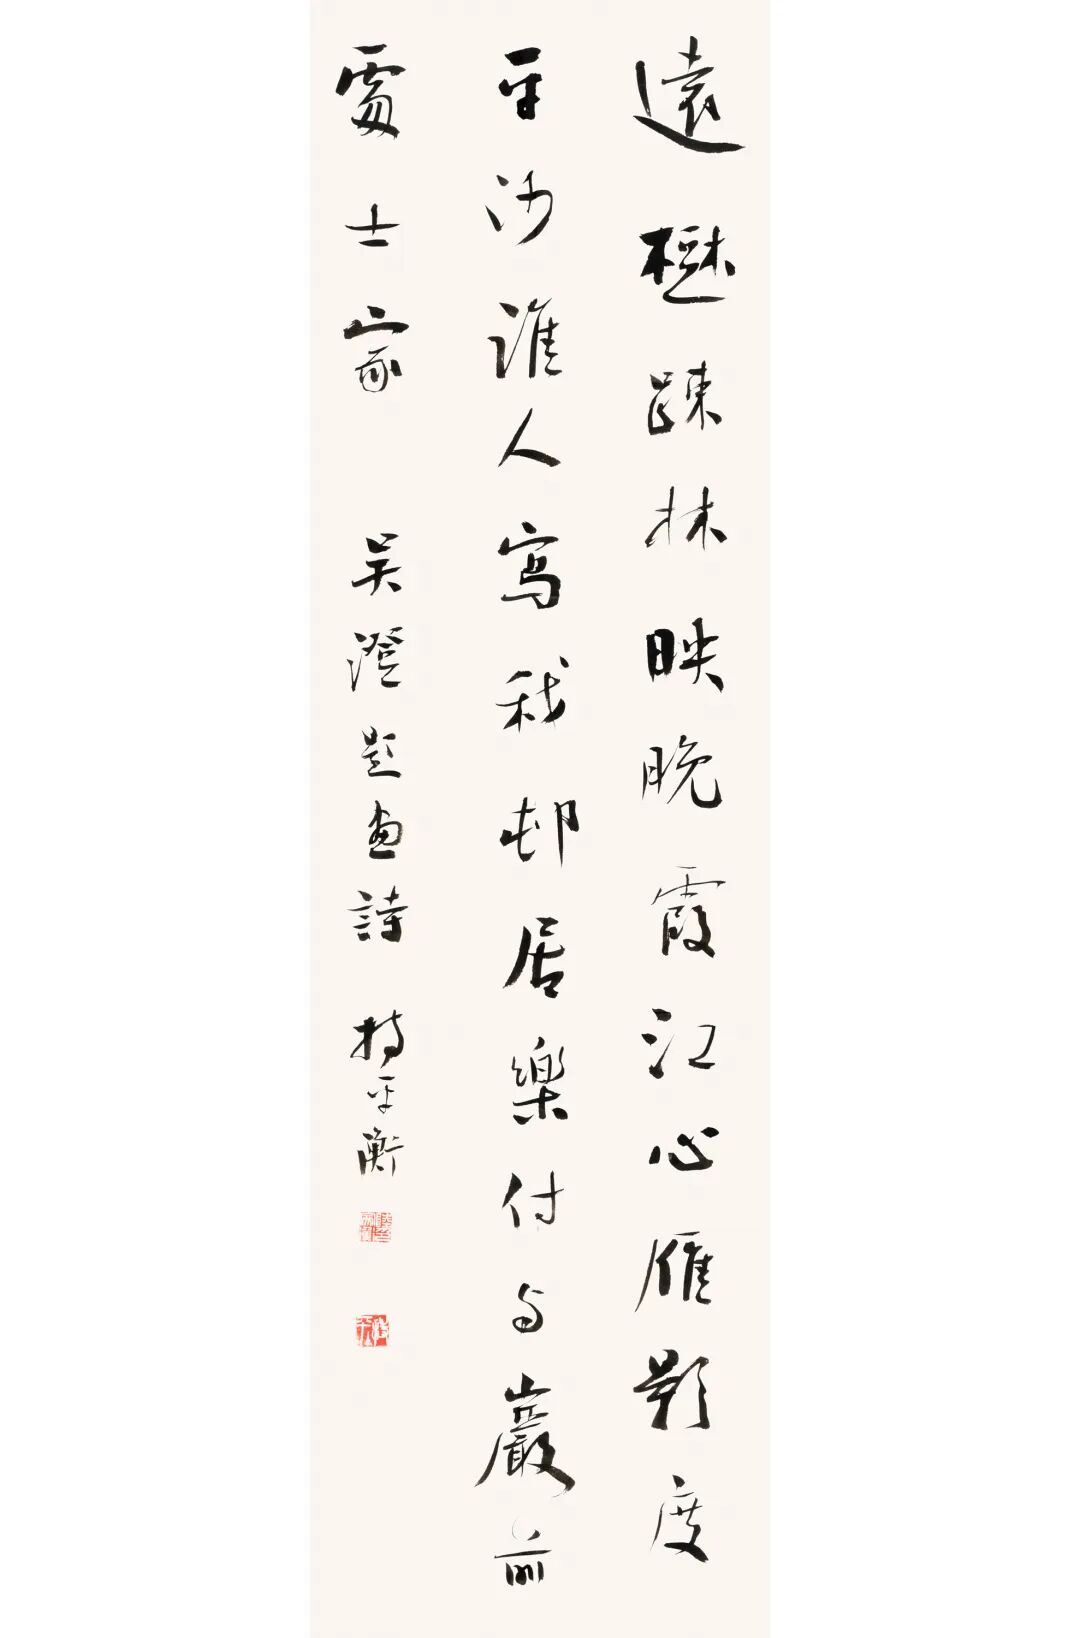 遠樾踈林映晚霞江心雁影度
平沙誰人寫我邨居樂付与巖前
處士家 吴澄題畫詩 持平衡